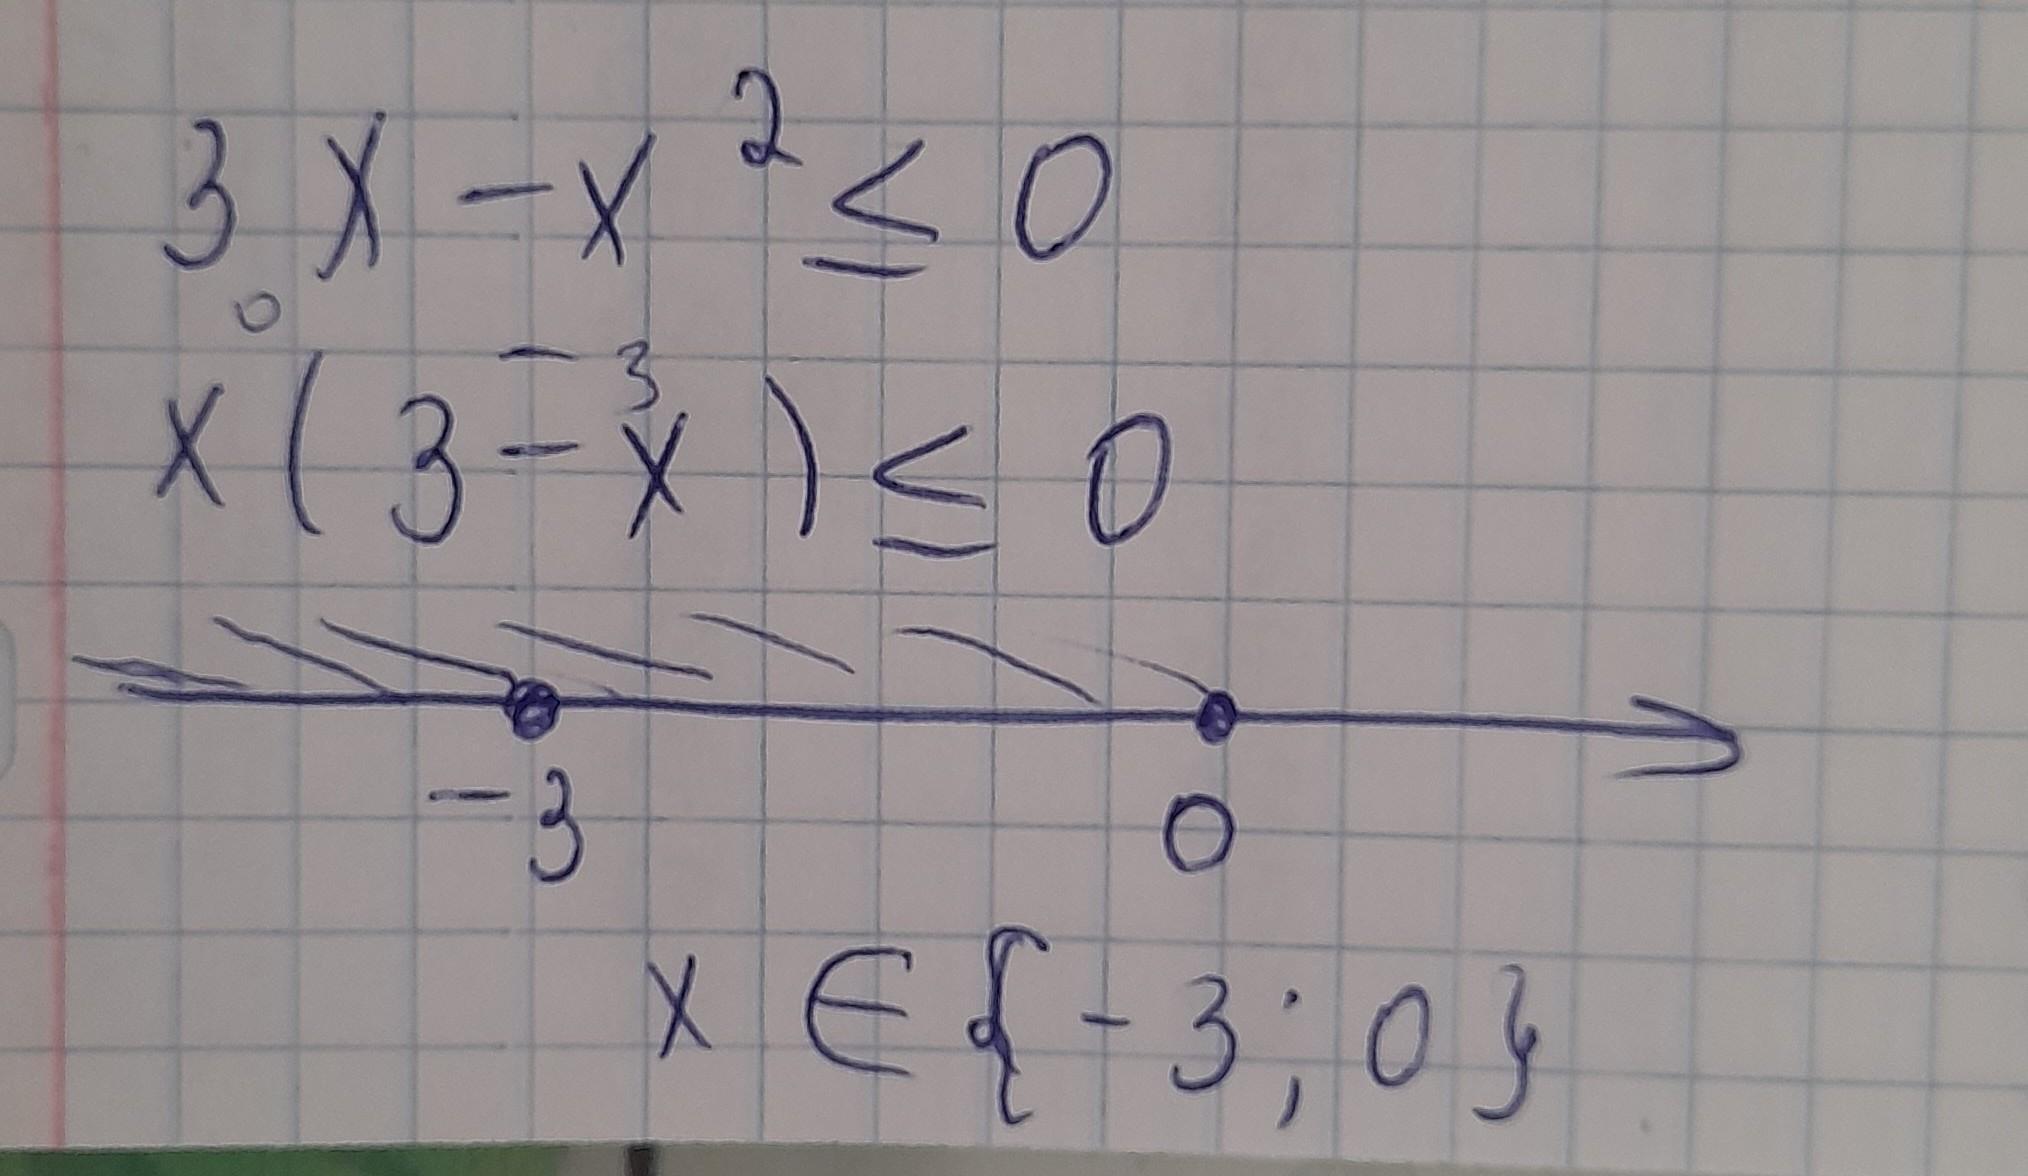 3x - x² ≤ 0
0 -3
x(3 - x) ≤ 0
-3 0
x ∈ {-3; 0}